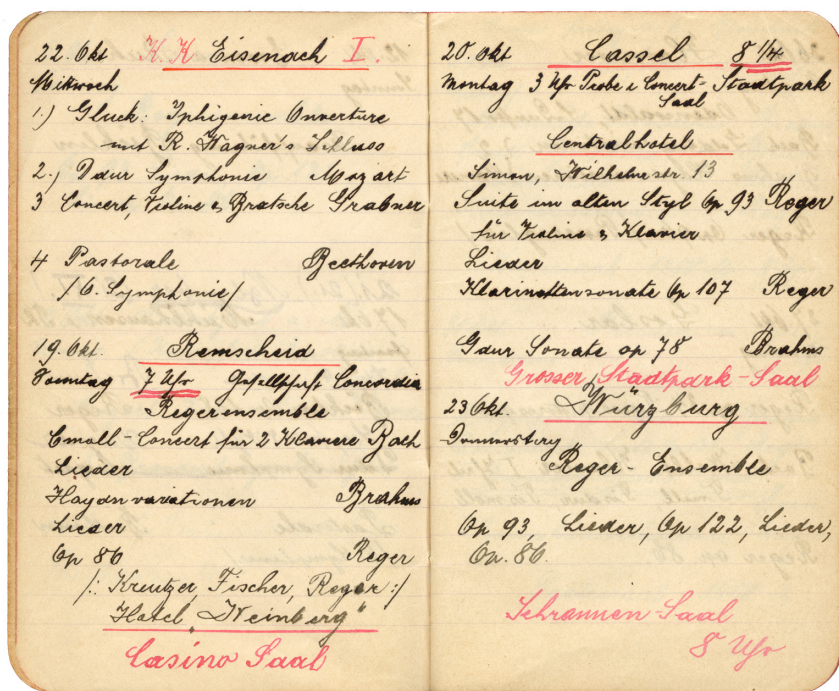 22. Okt K. K Eisenach I.
Mittwoch
1.) Gluck: Iphigenie Ouverture
mit R. Wagner's Schluss
2.) Ddur Symphonie Mozart
3 Concert, Violine & Bratsche Grabner
4 Pastorale Beethoven
/6. Symphonie/
19. Okt. Remscheid
Sonntag 7 Uhr Gesellschaft Concordia
Regerensemble
Cmoll-Concert für 2 Klaviere Bach
Lieder
Haydnvariationen Brahms
Lieder
Op 86 Reger
/: Kreutzer, Fischer, Reger :/
Hotel „Weinberg“
Casino Saal
20. Okt Cassel 8 1/4
Montag 3 Uhr Probe i Concert-Stadtpark
Saal
Centralhotel
Simon, Wilhelmstr. 13
Suite im alten Styl Op 93 Reger
für Violine & Klavier
Lieder
Klarinettensonate Op 107 Reger
Gdur Sonate op 78 Brahms
Grosser Stadtpark-Saal
23 Okt Würzburg
Donnerstag
Reger-Ensemble
Op 93, Lieder, Op 122, Lieder,
Op. 86.
Schrannen-Saal
8 Uhr